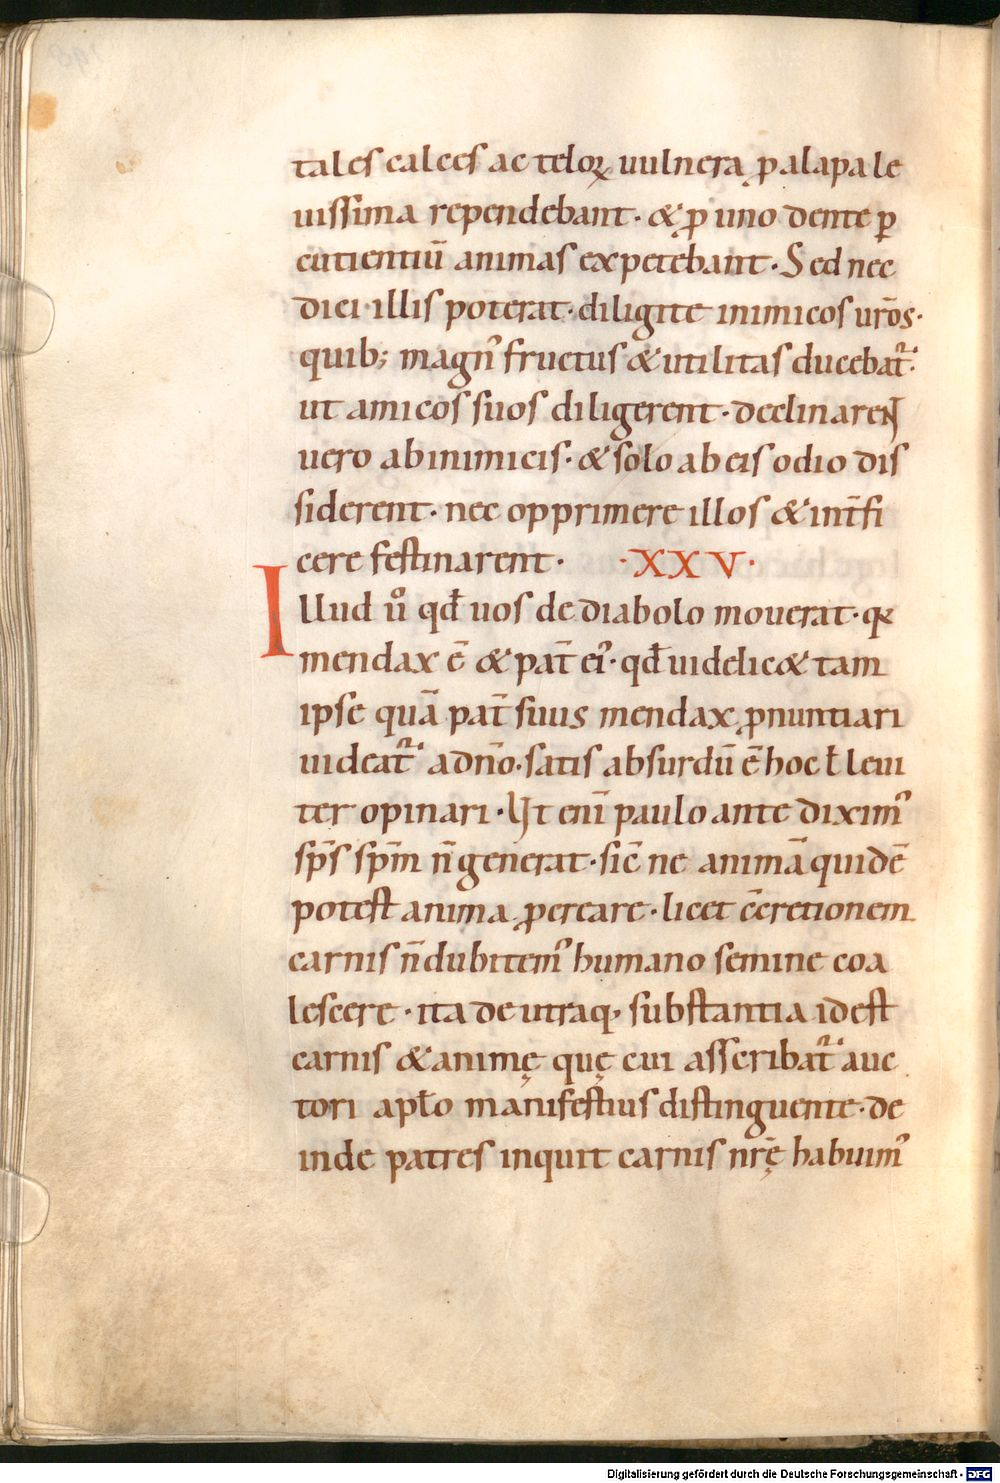 tales calces ac teloꝝ uulnera ꝓ alapa le
uissima rependebant· & ꝓ uno dente ꝑ
cutientiū animas expetebant· Sed nec
dici illis poterat· diligite inimicos ur̄os·
quib; magn᾿ fructus & utilitas ducebat᷑·
ut amicos suos diligerent· declinarent
uero ab inimicis· & solo ab eis odio dis
siderent· nec opprimere illos & int̄fi
cere festinarent· ·XXV·
Illud ů qđ uos de diabolo mouerat· qꝛ
mendax ē & pat̄ ei᾿· qđ uidelic& tam
ipse quā pat̄ suus mendax ꝓnuntiari
uideat᷑ adn̄o· satis absurdū ē hoc ł leui
ter opinari· Ut eni̅ paulo ante dixim᾿
sp̄s sp̄m n̄ generat· sic̄ ne animā quidē
potest anima ꝓcreare· licet c̄cretionem
carnis n̄ dubitem᾿ humano semine coa
lescere· ita de utraq, substantia idest
carnis & animę quę cui asscribat᷑ auc
tori apło manifestius distinguente· de
inde patres inquit carnis nr̄ę habuim᾿
Digitalisierung gefördert durch die Deutsche Forschungsgemeinschaft - DFG